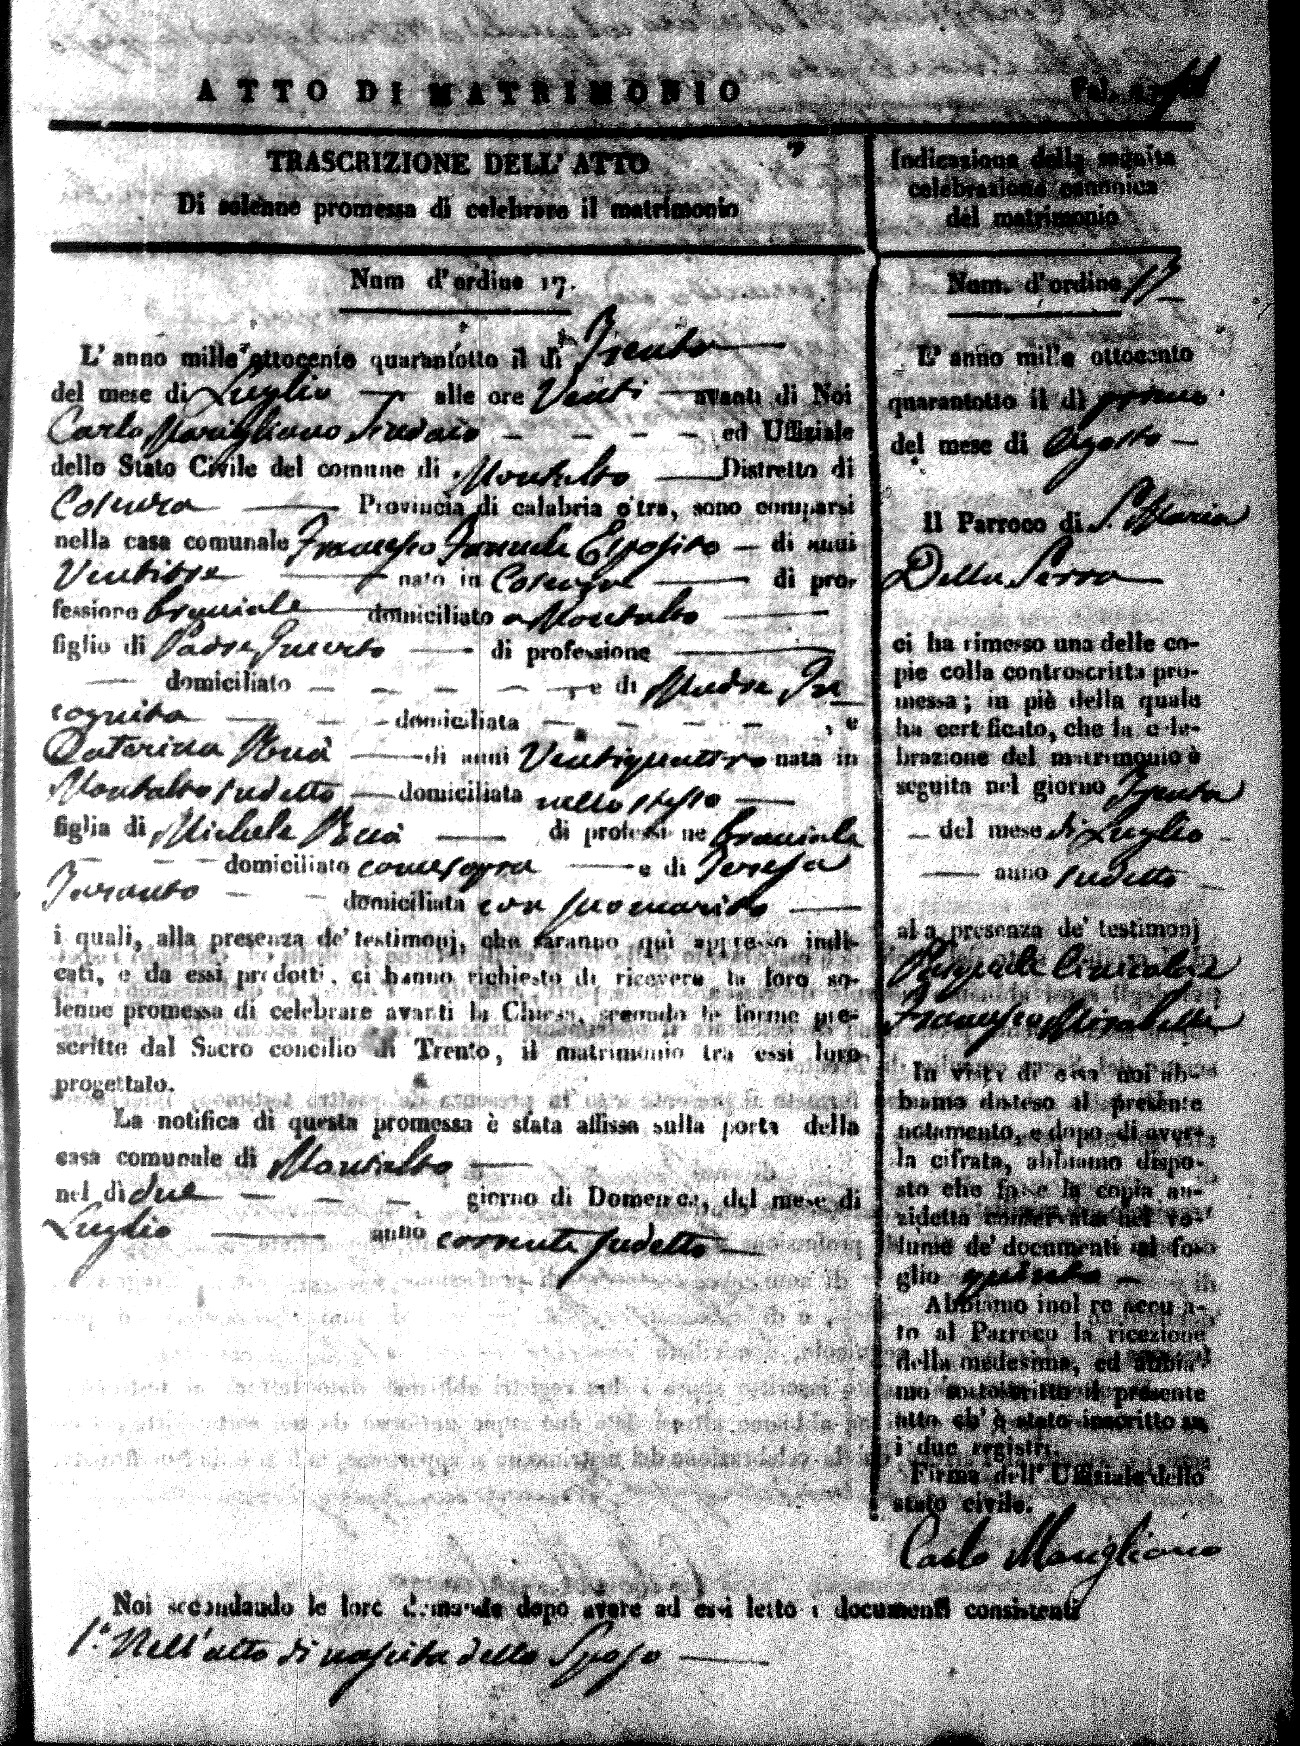 ATTO DI MATRIMONIO
TRASCRIZIONE DELL' ATTO
Di solenne promessa di celebrare il matrimonio
Num d'ordine 17.
L' anno mille ottocento quarantotto il di Trenta
del mese di Luglio alle ore Venti avanti di Noi
Carlo Marigliano Sindaco ed Uffiziale
dello Stato Civile del comune di Montalto Distretto di
Cosenza Provincia di calabria citra, sono comparsi
nella casa comunale Francesco Esposito di anni
Ventitre nato in Cosenza di pro-
fessione braciale domiciliato a Montalto
figlio di Padre Incerto di professione
domiciliato , e di Madre In
cognita domiciliata , e
Catarina di anni Ventiquattro nata in
Montalto sudetto domiciliata nello stesso
figlia di Michele di professione braciale
domiciliato come sopra e di Teresa
Taranto domiciliata con suo marito
i quali, alla presenza de' testimonj, che saranno quì appresso indi-
cati, e da essi prodotti, ci hanno richiesto di ricevere la loro so-
lenne promessa di celebrare avanti la Chiesa, secondo le forme pre-
scritte dal Sacro concilio di Trento, il matrimonio tra essi loro
progettato.
La notifica di questa promessa è stata affissa sulla porta della
casa comunale di Montalto
nel dì due giorno di Domenica, del mese di
Luglio anno corrente sudetto
Noi secondando le loro domande dopo avere ad essi letto i documenti consistenti
1.° Nell'atto di nascita dello Sposo
Indicazione della seguita
celebrazione canonica
del matrimonio
Num. d'ordine 17
L' anno mille ottocento
quarantotto il di primo
del mese di Agosto
Il Parroco di S. Maria
Della Serra
ci ha rimesso una delle co-
pie colla controscritta pro-
messa; in piè della quale
ha certificato, che la cele-
brazione del matrimonio è
seguita nel giorno Trenta
del mese di Luglio
anno sudetto
alla presenza de' testimonj
Pasquale
Francesco Mirabelli
In vista di essa noi ab-
biamo disteso il presente
notamento, e dopo di aver-
la cifrata, abbiamo dispo-
sto che fosse la copia an-
zidetta conservata nel vo-
lume de' documenti al fo-
glio quinto
Abbiamo inoltre accusa-
to al Parroco la ricezione
della medesima, ed abbia-
mo sottoscritto il presente
atto ch' è stato inscritto su
i due registri.
Firma dell' Uffiziale dello
stato civile.
Carlo Marigliano